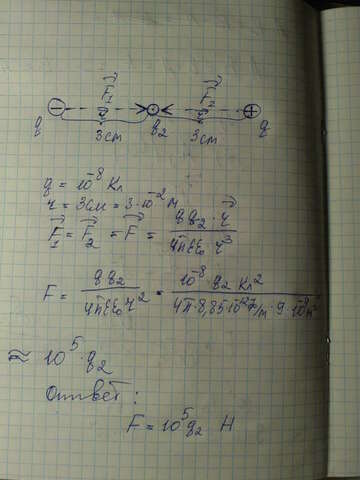 F₁ F₂
− +
q 3см q₂ 3см q
q = 10⁻⁸ Кл
r = 3см = 3·10⁻² м
F₁ = F₂ = F = qq₂·r / 4πεε₀ r³
F = qq₂ / 4πεε₀r² = 10⁻⁸·q₂ Кл² / 4π·8,85·10⁻¹²Ф/м·9·10
≈ 10⁵·q₂
Ответ:
F = 10⁵q₂ Н